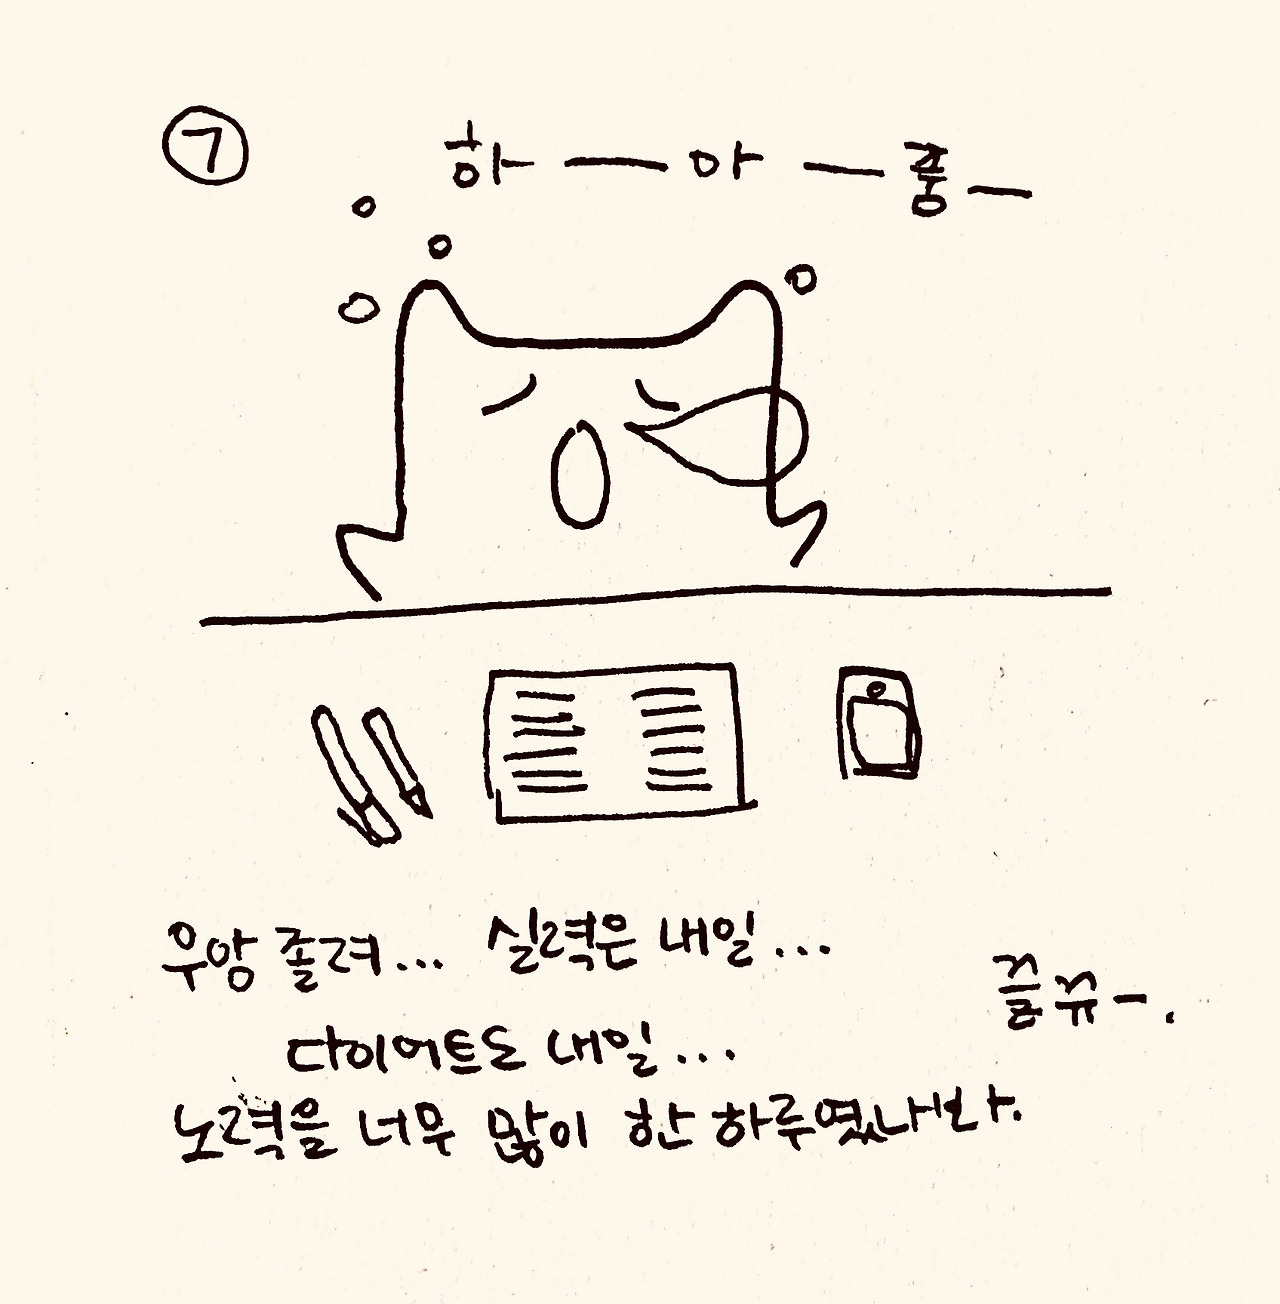 ⑦
하 — 아 — 좀 —
우앙 졸려... 실력은 내일...
다이어트도 내일...
노력을 너무 많이 한 하루였나봐.